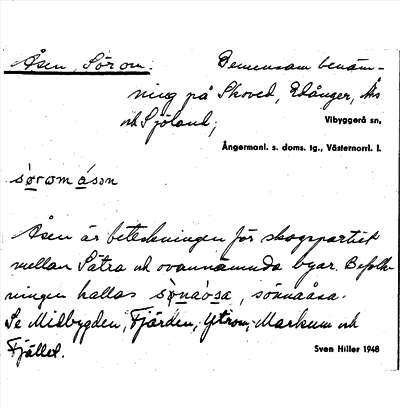 Åsen, Sör om. Gemensam benäm-
ning på Skoved, Edånger, Ås
och Sjöland;
Vibyggerå sn.
Ångermanl. s. doms. tg., Västernorrl. l.
Åsen är beteckningen för skogspartiet
mellan Sätra och ovannämnda byar. Befolk-
ningen kallas
Se Midbygden, Fjärden, Ytrom, Markum och
Fjället.
Sven Hiller 1948